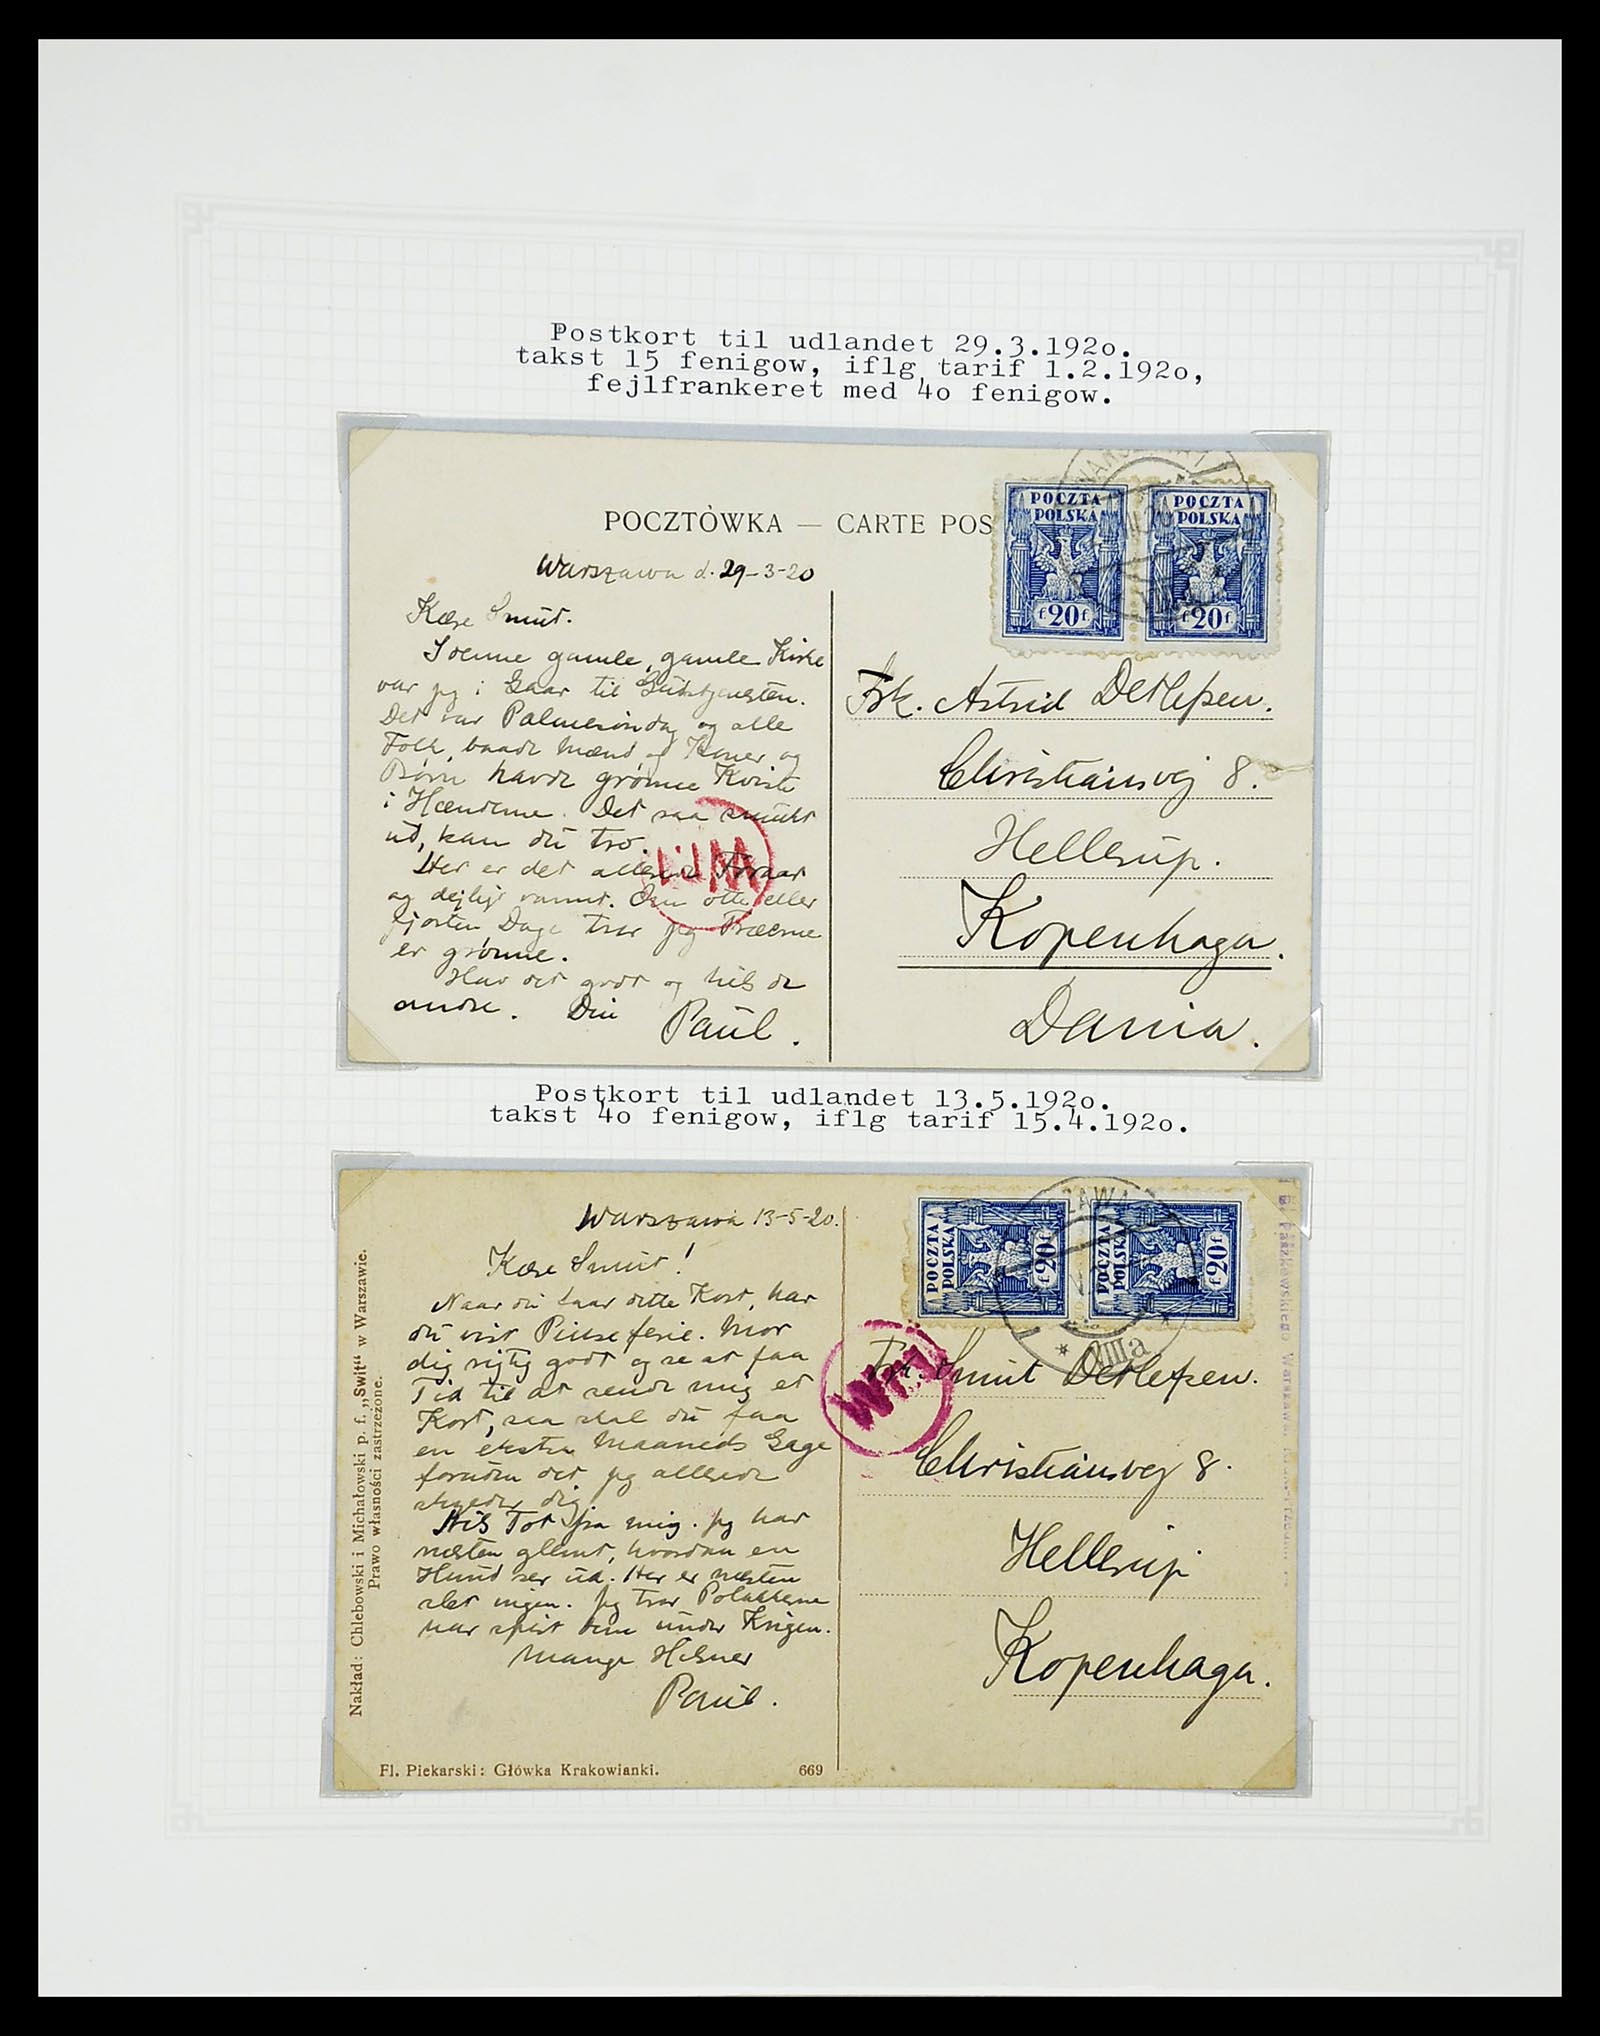 Postkort til udlandet 29.3.192o.
takst 15 fenigow, iflg tarif 1.2.192o,
fejlfrankeret med 4o fenigow.
POCZTÓWKA — CARTE POS
POCZTA POLSKA
f 20 f
POCZTA POLSKA
f 20 f
Warszawa d. 29-3-20
Kære Smut.
I denne gamle, gamle Kirke
var jeg i Gaar til Gudstjenesten.
Det var Palmesøndag og alle
Folk, baade Mænd og Koner og
Børn havde grønne Kviste
i Hænderne. Det saa smukt
ud, kan du tro.
Her er det allerede Foraar
og dejligt varmt. Om otte eller
fjorten Dage tror jeg Træerne
er grønne.
Hav det godt og hils de
andre. Din Paul.
Frk. Astrid Detlefsen.
Christiansvej 8.
Hellerup.
Kopenhaga.
Dania.
Postkort til udlandet 13.5.192o.
takst 4o fenigow, iflg tarif 15.4.192o.
Warszawa 13-5-20.
Kære Smut!
Naar du faar dette Kort, har
du vist Pinseferie. Mor
dig rigtig godt og se at faa
Tid til at sende mig et
Kort, saa skal du faa
en ekstra Maaneds Gage
foruden det jeg allerede
skylder dig.
Hils Tot fra mig. Jeg har
næsten glemt, hvordan en
Hund ser ud. Her er næsten
slet ingen. Jeg tror Polakkerne
har spist dem under Krigen.
Mange Hilsner
Paul.
POCZTA POLSKA
f 20 f
POCZTA POLSKA
f 20 f
VIIIa
Frk. Smut Detlefsen.
Christiansvej 8.
Hellerup
Kopenhaga.
Nakład: Chlebowski i Michałowski p. f. „Świt“ w Warszawie.
Prawo własności zastrzeżone.
Fl. Piekarski: Główka Krakowianki.
669